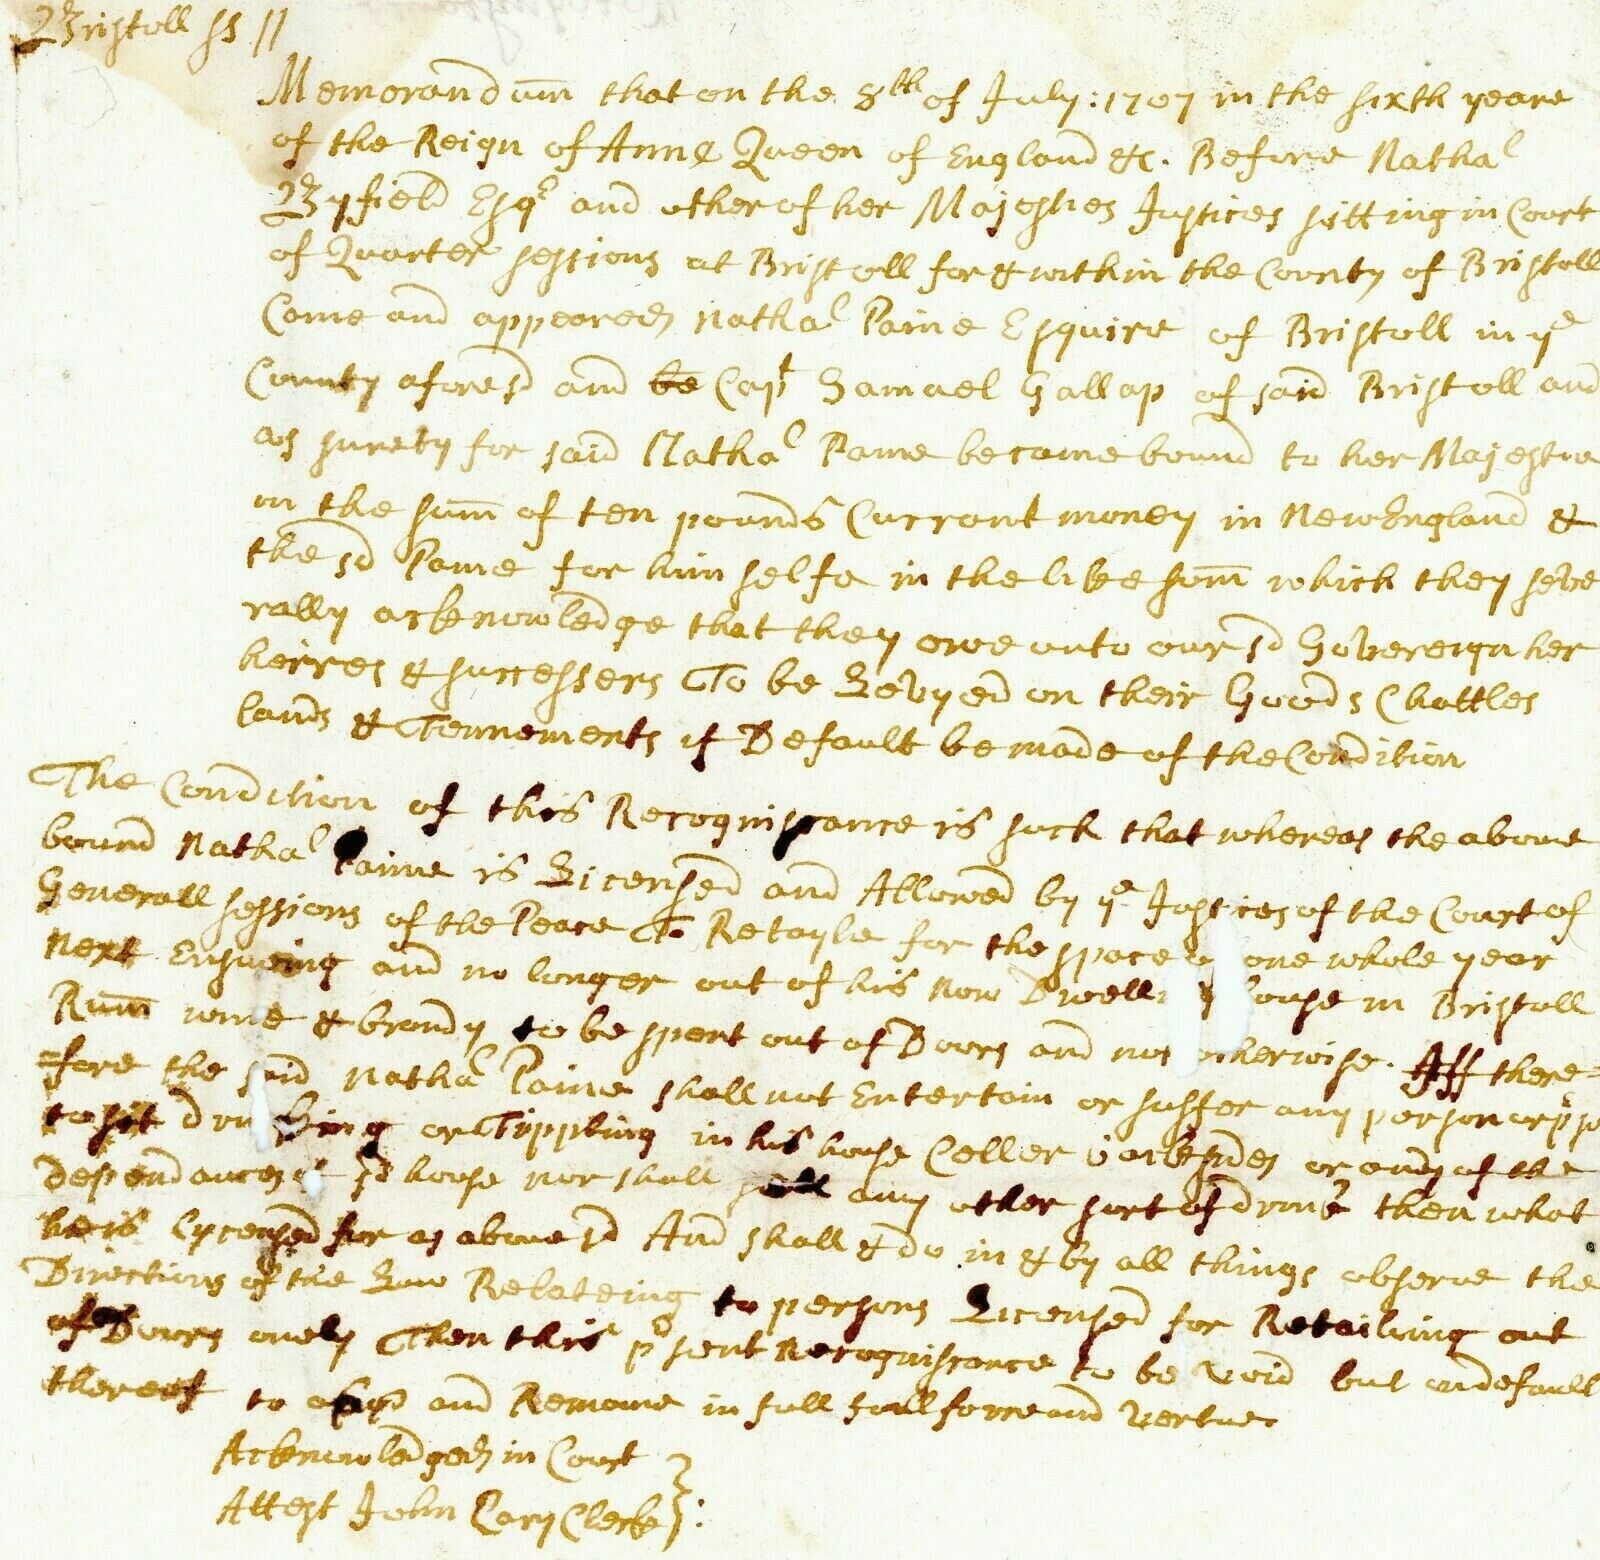 Bristoll ss //
Memorandum that on the 8th of July: 1707 in the sixth yeare
of the Reign of Anne Queen of England &c. Before Nathal
Byfield Esqr and other of her Majesties Justices sitting in Court
of Quarter sessions at Bristoll for & within the County of Bristoll
Came and appeared Nathal Paine Esquire of Bristoll in ye
County aforesd and be Capt Samael Gallap of said Bristoll and
as surety for said Nathal Paine became bound to her Majestie
in the sum of ten pounds Currant money in New England &
the sd Paine for himselfe in the like sum which they seve
rally acknowledge that they owe unto our sd Sovereign her
heirres & successers To be Levyed on their Goods Chattles
lands & Tennements if Default be made of the Condition
The Condition of this Recogniscance is such that whereas the above
bound Nathal Paine is Licensed and Allowed by ye Justices of the Court of
Generall sessions of the Peace To Retayle for the space one whole year
Next Ensueing and no longer out of his Now Dwelling house in Bristoll
Rum wine & brandy to be spent out of Doors and not otherwise. Iff there=
=fore the said Nathal Paine shall not Entertain or suffer any person or
to sit drinking or Tippling in his house Celler or any of the
dependances of sd house nor shall sell any other sort of drink then what
he is lycensed for as above sd And shall & do in & by all things observe the
Directions of the Law Relateing to persons Licensed for Retailing out
of Doors onely Then this psent Recogniscance to be void but on default
thereof to abyd and Remaine in full force and vertue
Acknowledged in Court
Attest John Cary Clerke :